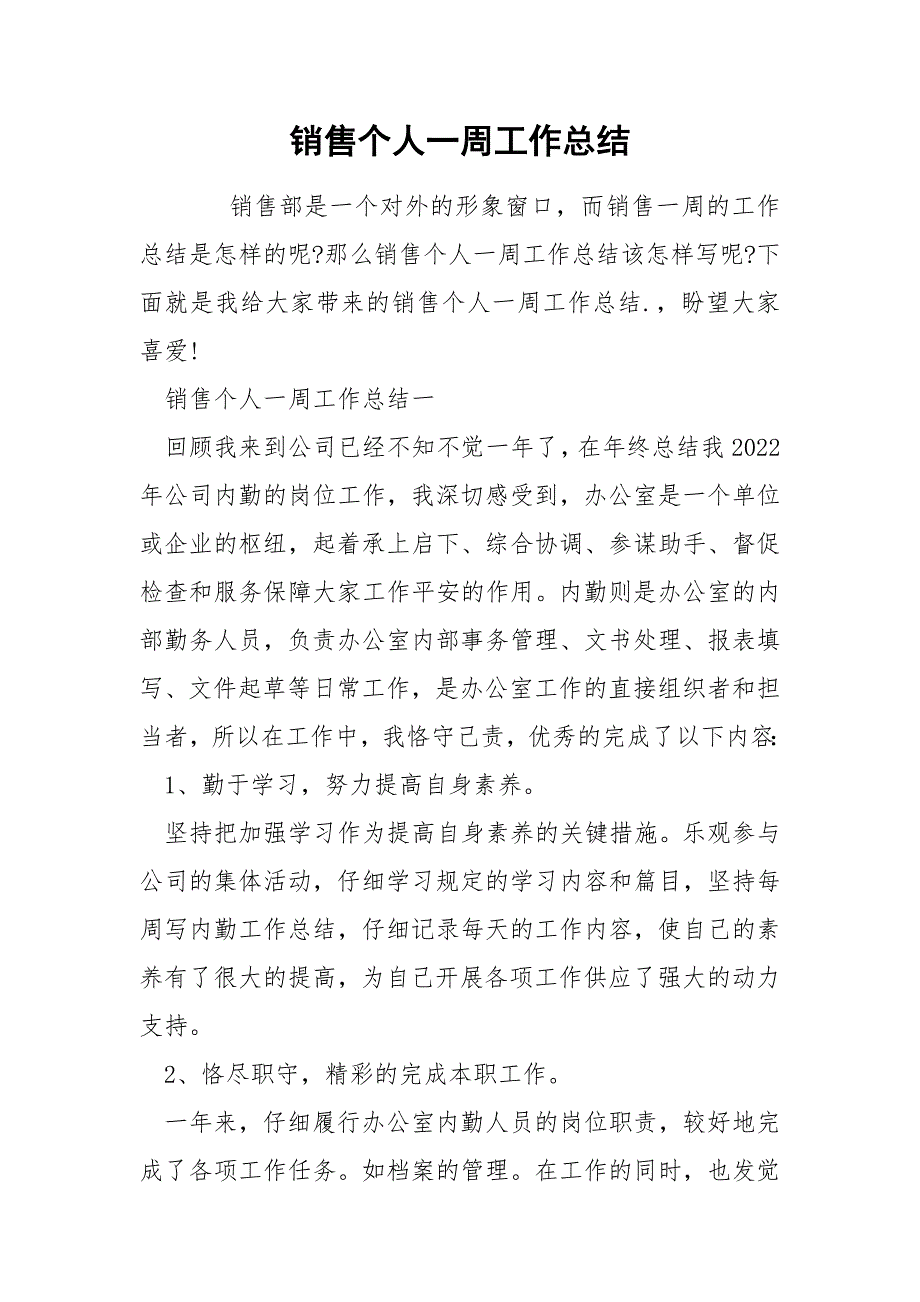 销售个人一周工作总结
销售部是一个对外的形象窗口，而销售一周的工作
总结是怎样的呢?那么销售个人一周工作总结该怎样写呢?下
面就是我给大家带来的销售个人一周工作总结.，盼望大家
喜爱!
销售个人一周工作总结一
回顾我来到公司已经不知不觉一年了，在年终总结我 2022
年公司内勤的岗位工作，我深切感受到，办公室是一个单位
或企业的枢纽，起着承上启下、综合协调、参谋助手、督促
检查和服务保障大家工作平安的作用。内勤则是办公室的内
部勤务人员，负责办公室内部事务管理、文书处理、报表填
写、文件起草等日常工作，是办公室工作的直接组织者和担
当者，所以在工作中，我恪守己责，优秀的完成了以下内容：
1、勤于学习，努力提高自身素养。
坚持把加强学习作为提高自身素养的关键措施。乐观参与
公司的集体活动，仔细学习规定的学习内容和篇目，坚持每
周写内勤工作总结，仔细记录每天的工作内容，使自己的素
养有了很大的提高，为自己开展各项工作供应了强大的动力
支持。
2、恪尽职守，精彩的完成本职工作。
一年来，仔细履行办公室内勤人员的岗位职责，较好地完
成了各项工作任务。如档案的管理。在工作的同时，也发觉